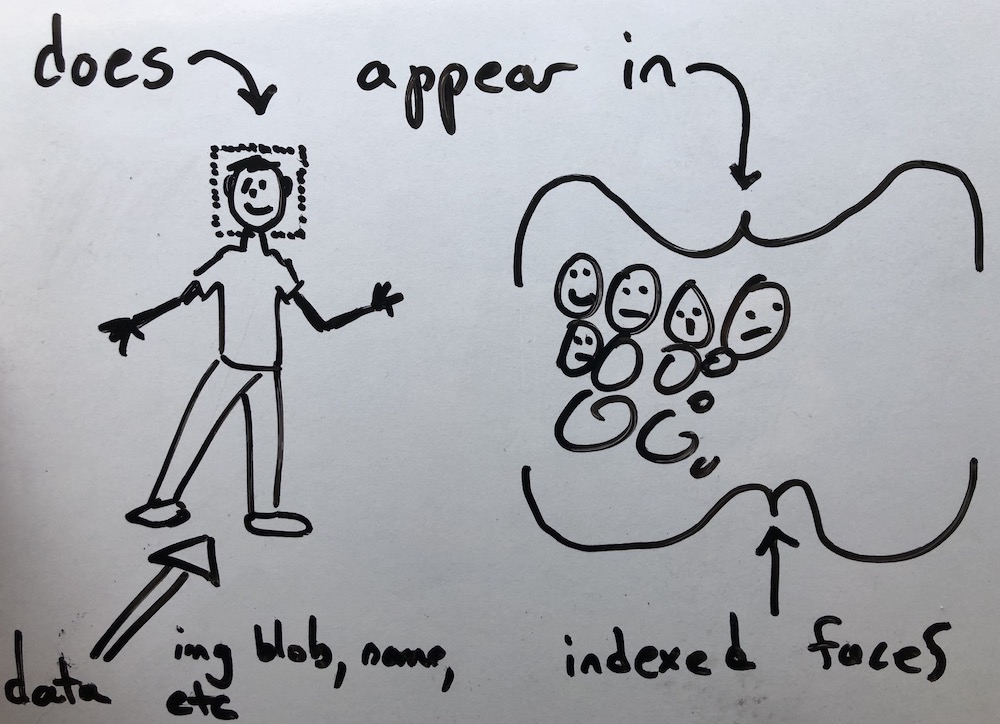 does
appear in
data
img blob, name,
etc
indexed faces